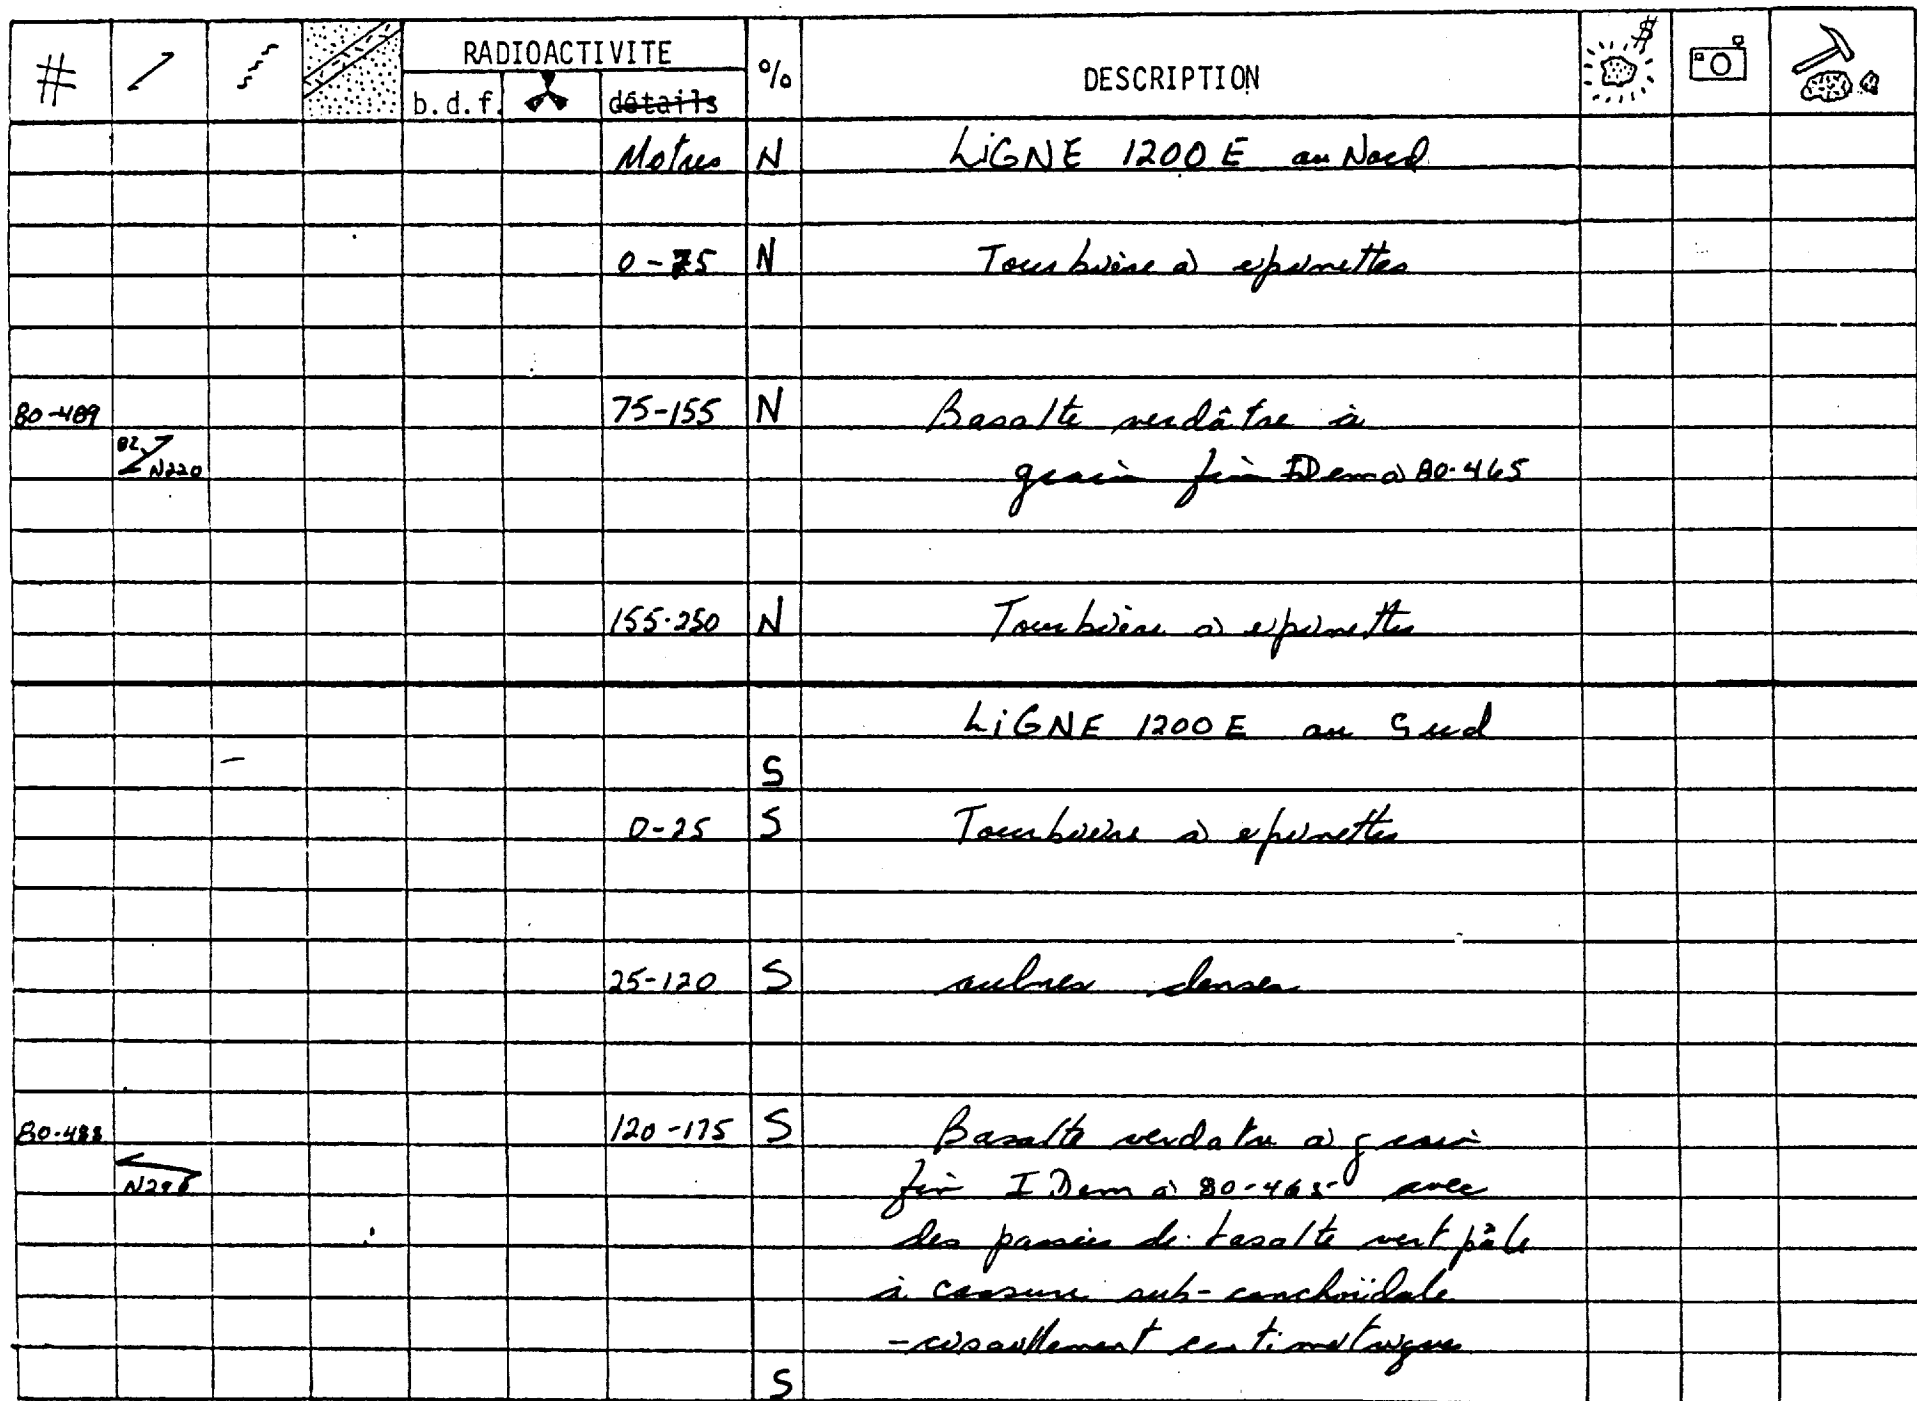 # RADIOACTIVITE % DESCRIPTION $
b.d.f. détails
Metres N LiGNE 1200 E au Nord
0-75 N Tourbière à epinettes
80-489 75-155 N Basalte verdâtre à
82 N220 grain fin IDem à 80-465
155-250 N Tourbière à epinettes
LiGNE 1200 E au Sud
S
0-25 S Tourbière à epinettes
25-120 S aulnes denses
80-488 120-175 S Basalte verdatre à grain
fin IDem à 80-465 avec
des passées de basalte vert pâle
à cassure sub-conchoïdale
-cisaillement centimetriques
S